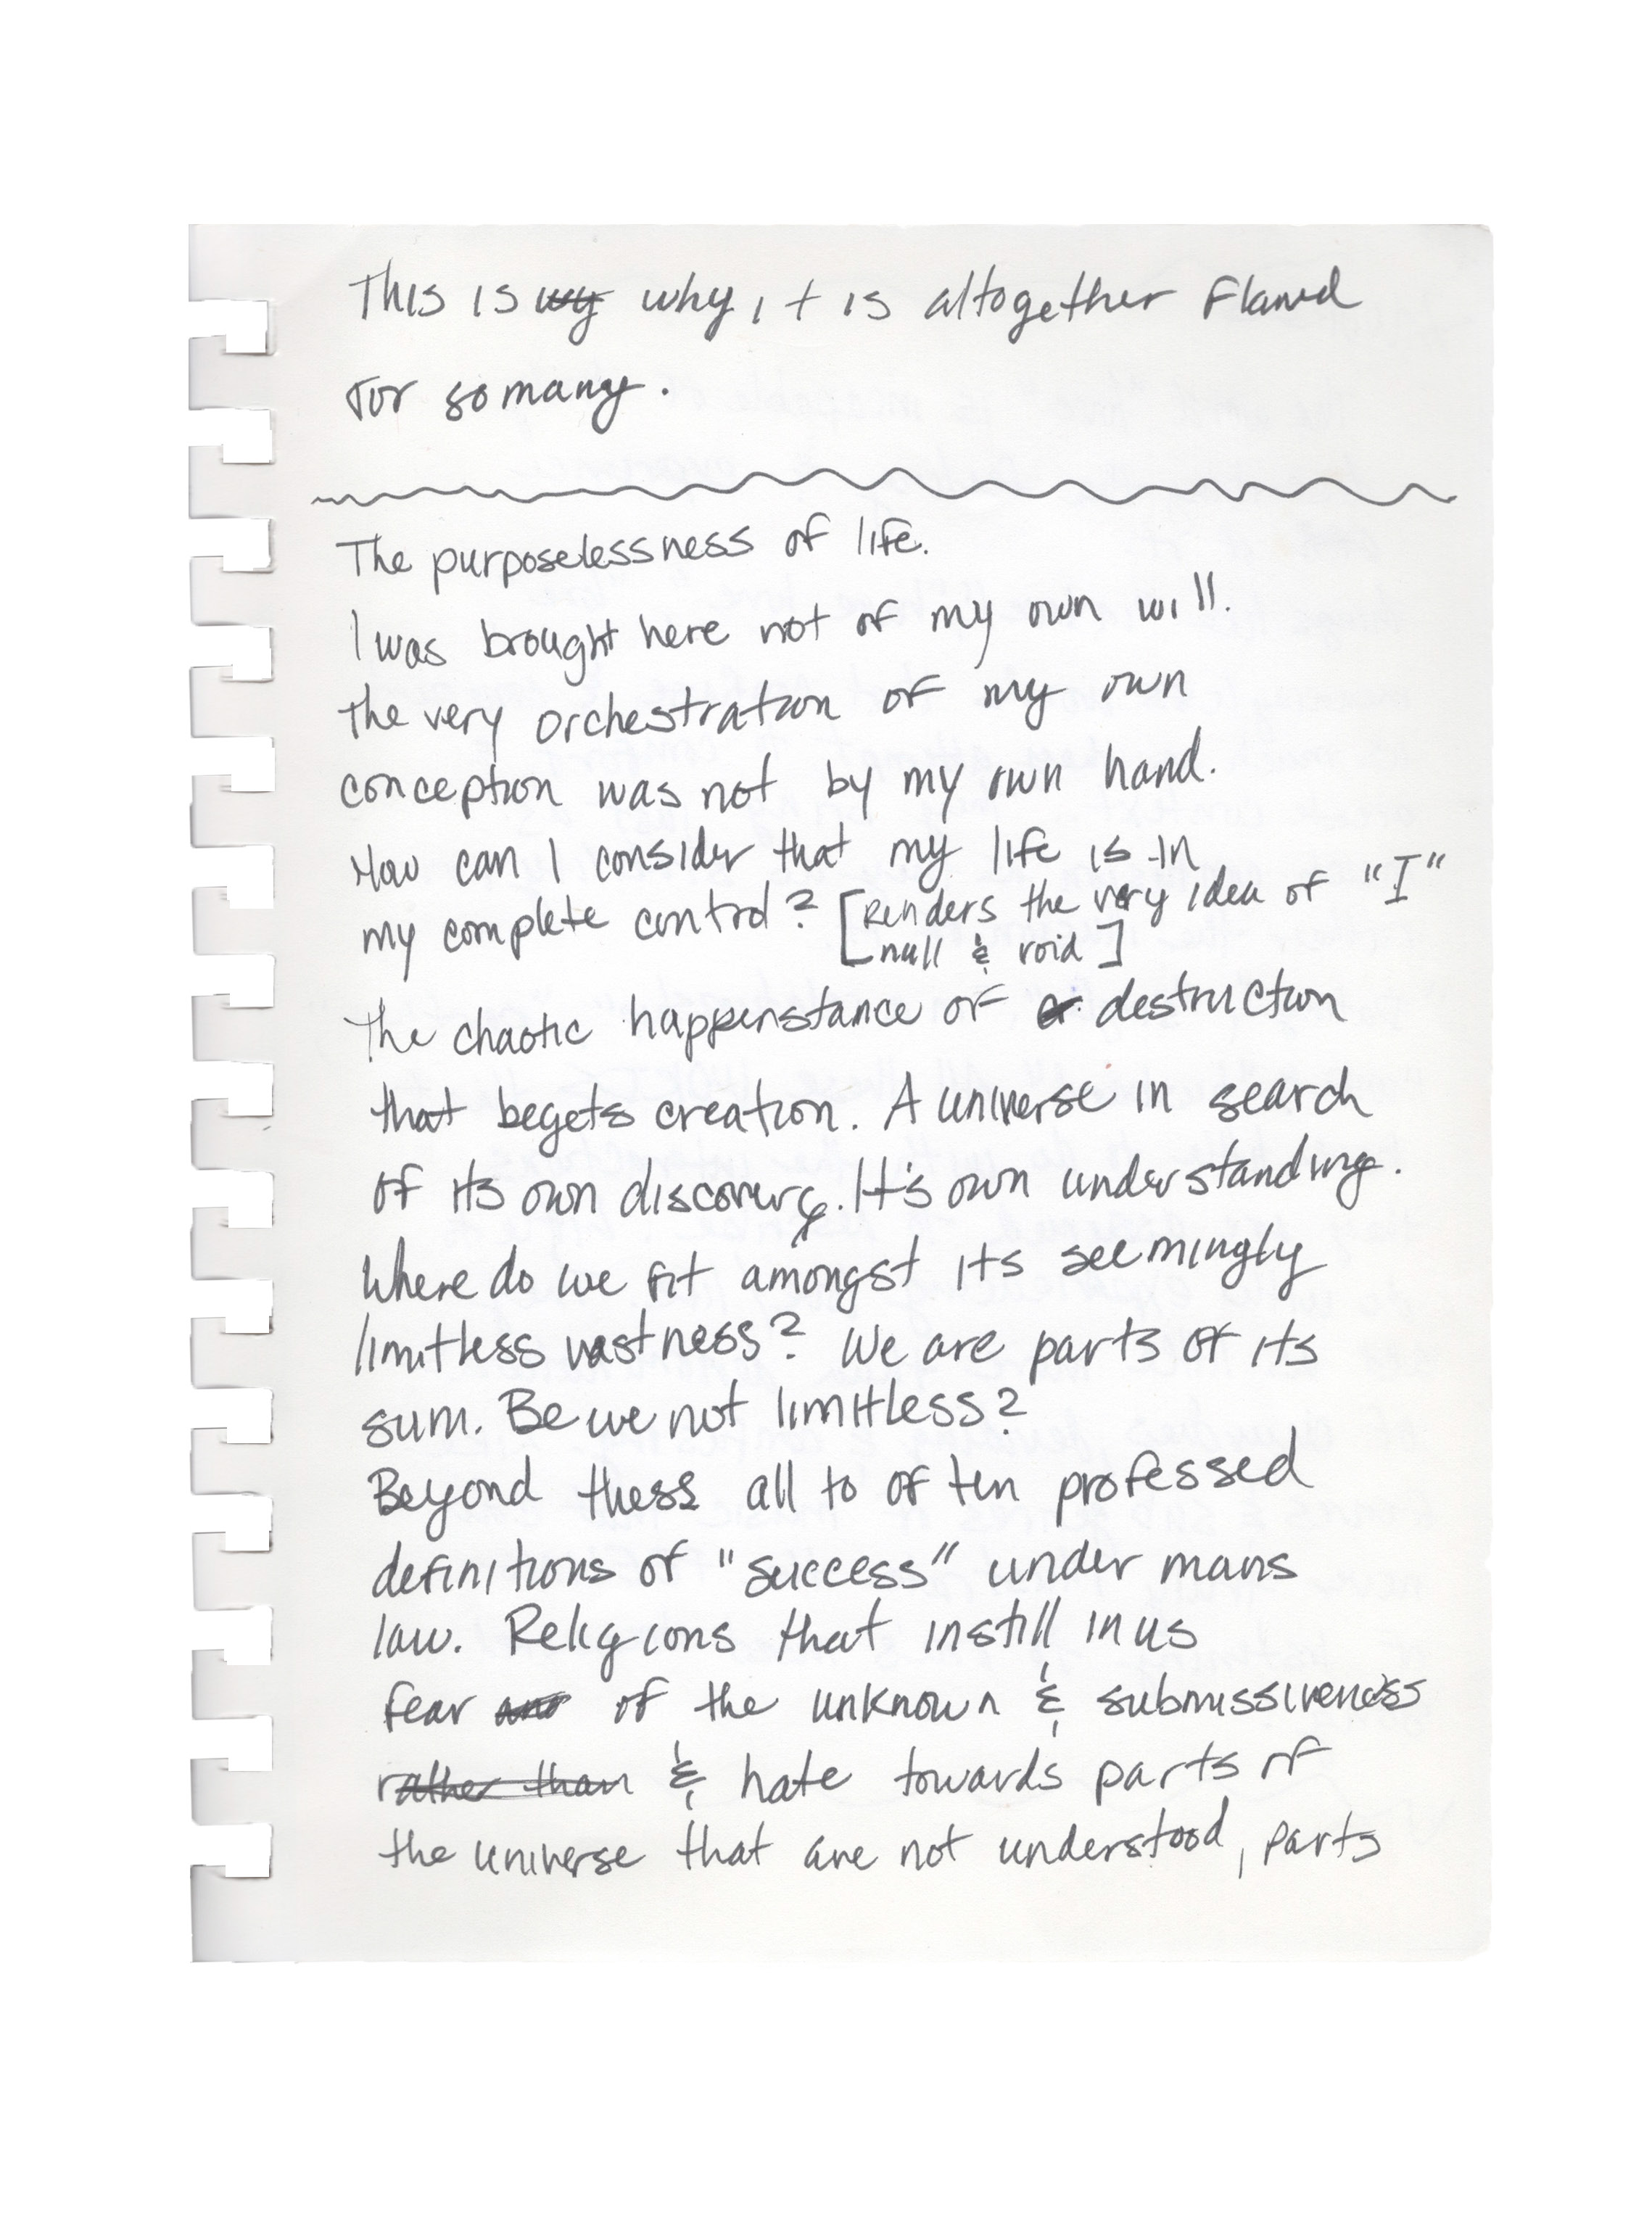 This is wy why, it is altogether flawed
for so many.
The purposelessness of life.
I was brought here not of my own will.
The very orchestration of my own
conception was not by my own hand.
How can I consider that my life is in
my complete control? [Renders the very idea of "I"
null & void]
The chaotic happenstance of a destruction
that begets creation. A universe in search
of its own discovery. It's own understanding.
Where do we fit amongst its seemingly
limitless vastness? We are parts of its
sum. Be we not limitless?
Beyond thess all to often professed
definitions of "success" under mans
law. Religions that instill in us
fear and of the unknown & submissiveness
rather than & hate towards parts of
the universe that are not understood, parts